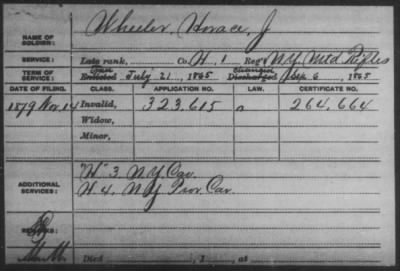 NAME OF SOLDIER: Wheeler, Horace, J
SERVICE: Late rank, Co. H, 1 Reg't N.Y. Mtd. Rifles
TERM OF SERVICE: Enlisted July 21, 1865 Discharged Sep. 6, 1865
DATE OF FILING. CLASS. APPLICATION NO. LAW. CERTIFICATE NO.
1879 Nov. 14 Invalid, 323,615 264,664
Widow,
Minor,
ADDITIONAL SERVICES: "H" 3, N.Y. Cav.
H 4, N.Y. Prov. Cav.
REMARKS:
Died , 1 , at